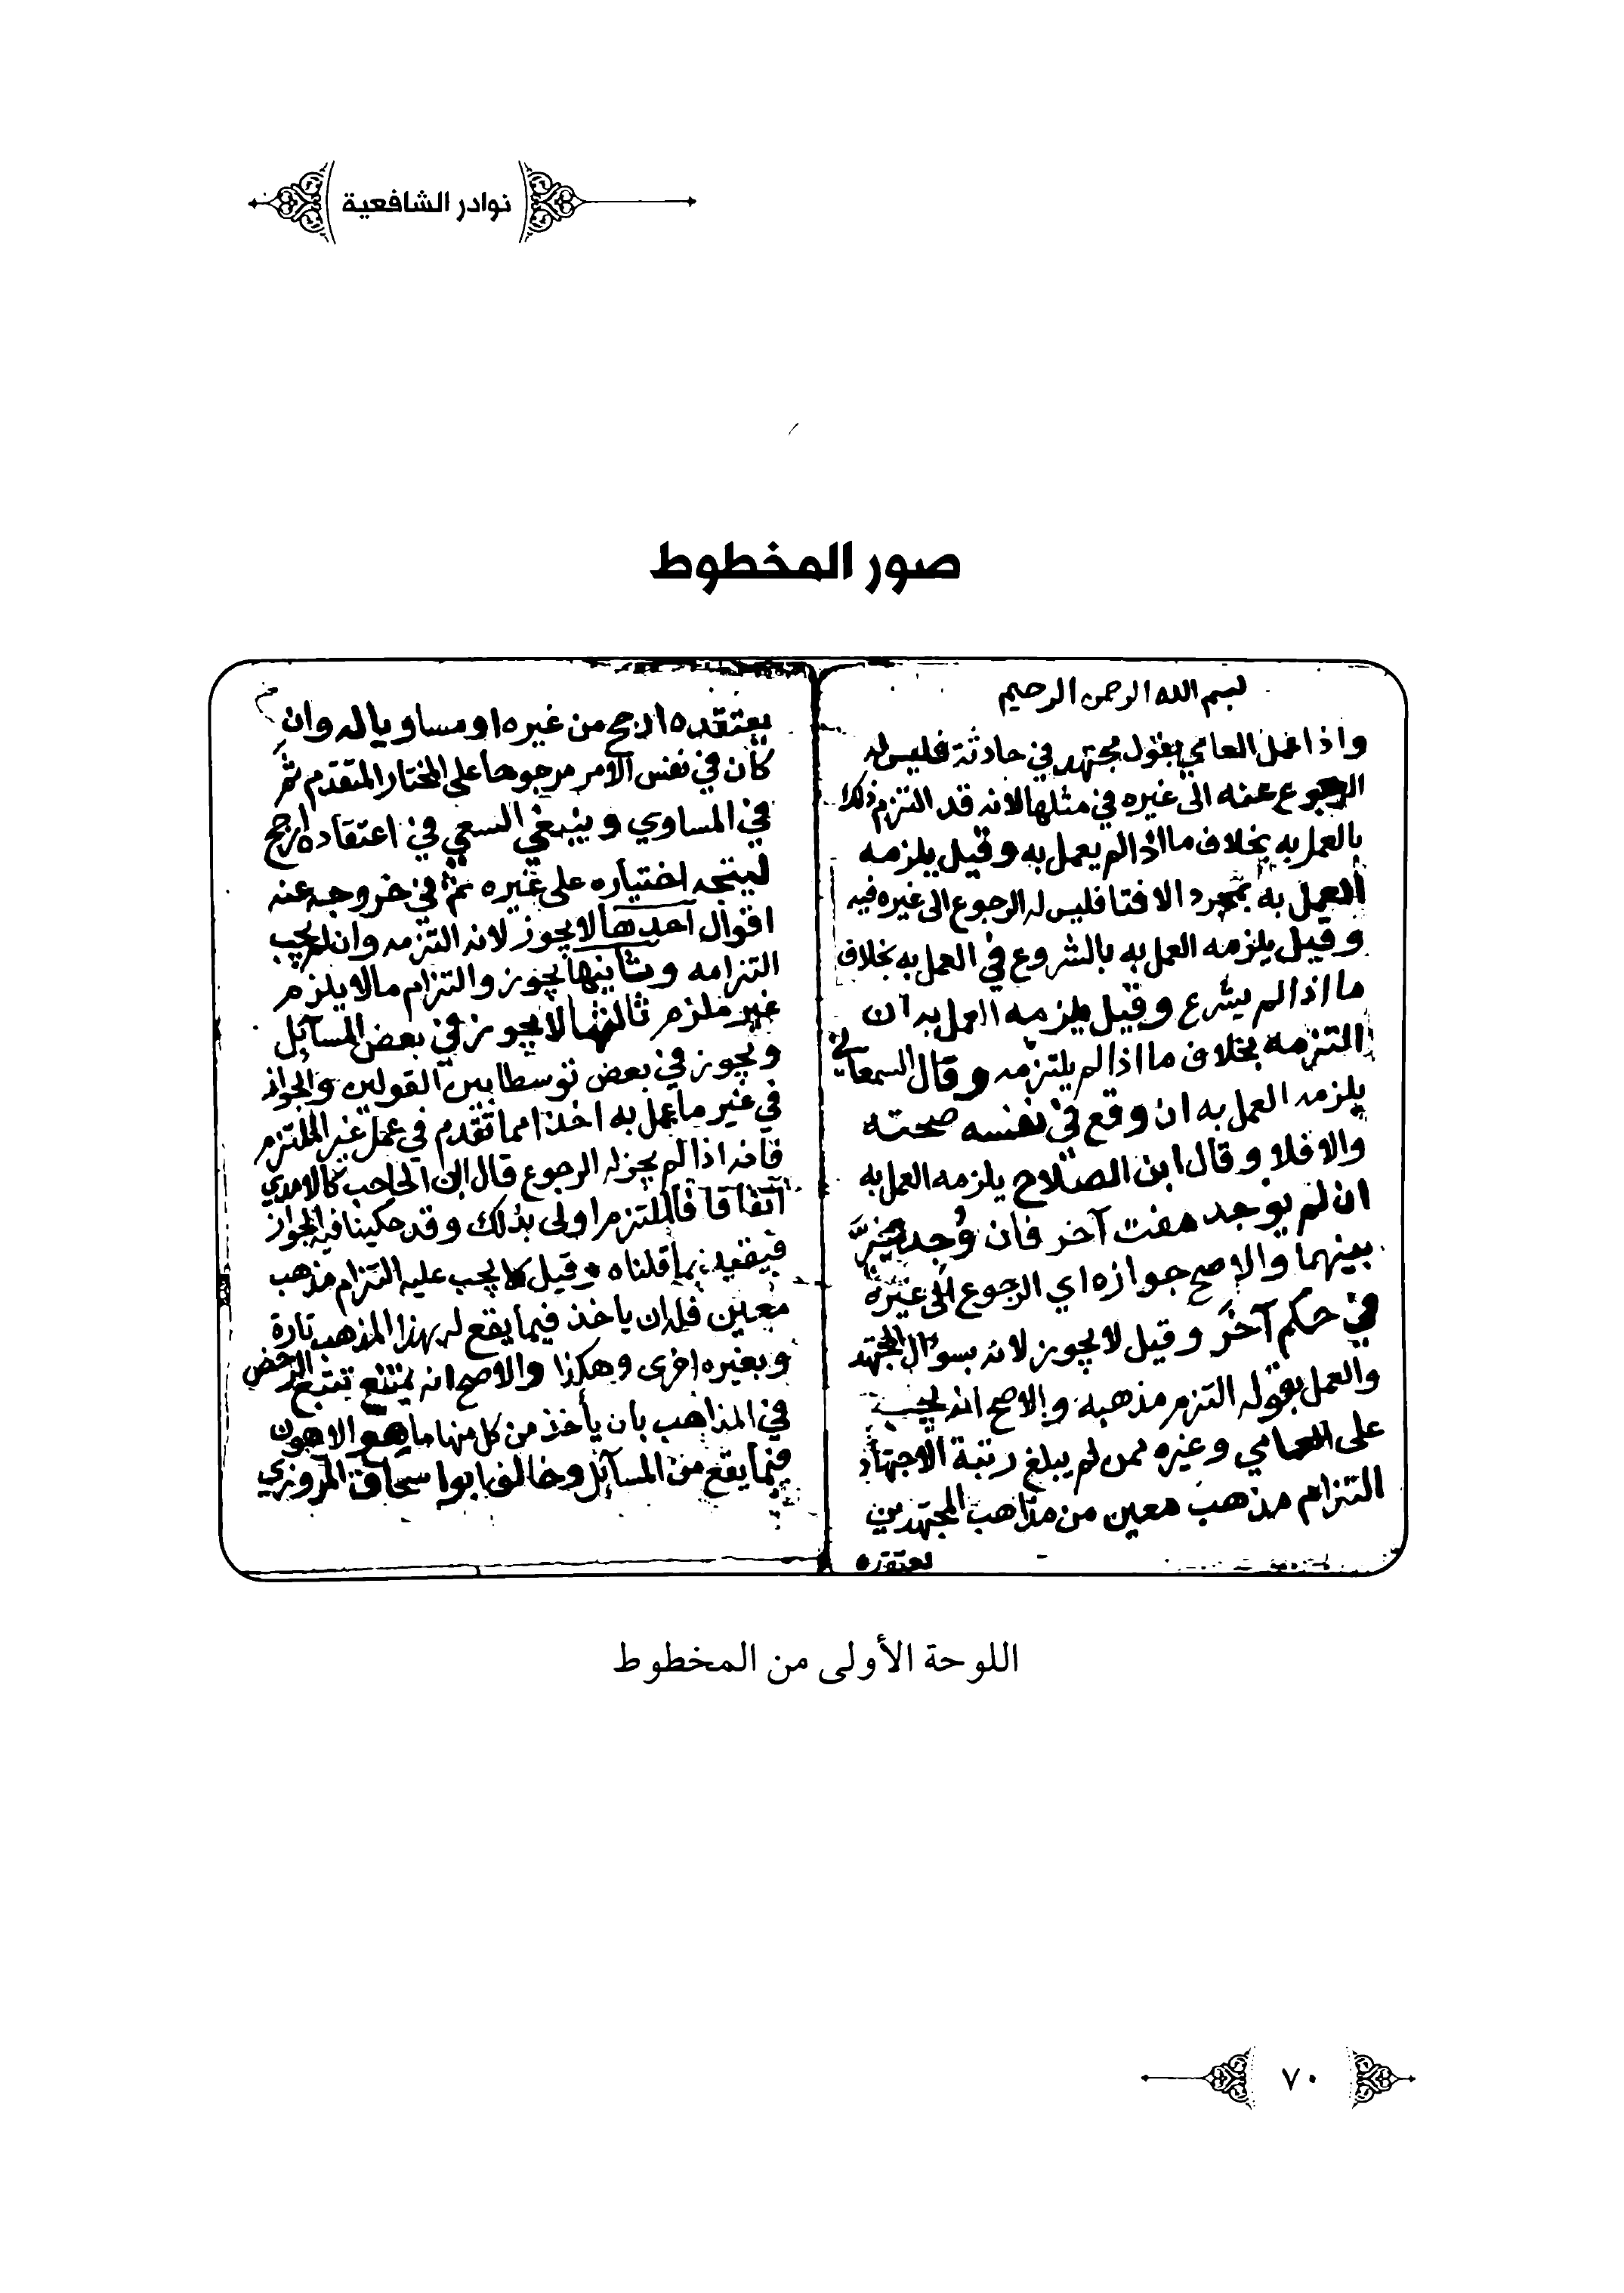 نوادر الشافعية
صور المخطوط
بسم الله الرحمن الرحيم
واذا عمل العامي بقول مجتهد في حادثة فليس له
الرجوع عنه الى غيره في مثلها لانه قد التزم ذلك
بالعمل به بخلاف ما اذا لم يعمل به وقيل يلزمه
العمل به بمجرد الافتا فليس له الرجوع الى غيره فيه
وقيل يلزمه العمل به بالشروع في العمل به بخلاف
ما اذا لم يشرع وقيل يلزمه العمل به ان
التزمه بخلاف ما اذا لم يلتزمه وقال السمعاني
يلزمه العمل به ان وقع في نفسه صحته
والا فلا وقال ابن الصلاح يلزمه العمل به
ان لم يوجد مفت آخر فان وُجد تخيَّر
بينهما والاصح جوازه اي الرجوع الى غيره
في حكم آخر وقيل لا يجوز لانه بسوال المجتهد
والعمل بقوله التزم مذهبه والاصح انه يجب
على العامي وغيره ممن لم يبلغ رتبة الاجتهاد
التزام مذهب معين من مذاهب المجتهدين
يعتقده
يعتقده ارجح من غيره او مساويا له وان
كان في نفس الامر مرجوحا على المختار المتقدم ثم
في المساوي وينبغي السعي في اعتقاده ارجح
ليتجه اختياره على غيره ثم في خروجه عنه
اقوال احدها لا يجوز لانه التزمه وان لم يجب
التزامه وثانيها يجوز والتزام ما لا يلزم
غير ملزم ثالثها لا يجوز في بعض المسآئل
ويجوز في بعض توسطا بين القولين والجواز
في غير ما عمل به اخذا مما تقدم في عمل غير الملتزم
فانه اذا لم يجز له الرجوع قال ابن الحاجب كالامدي
اتفاقا فالملتزم اولى بذلك وقد حكينا فيه الجواز
فيقيد بما قلناه وقيل لا يجب عليه التزام مذهب
معين فله ان ياخذ فيما يقع له بهذا المذهب تارة
وبغيره اخرى وهكذا والاصح انه يمتنع تتبع الرخص
في المذاهب بان يأخذ من كل منها ما هو الاهون
فيما يقع من المسآئل وخالف ابوا سحاق المروزي
اللوحة الأولى من المخطوط
٧٠